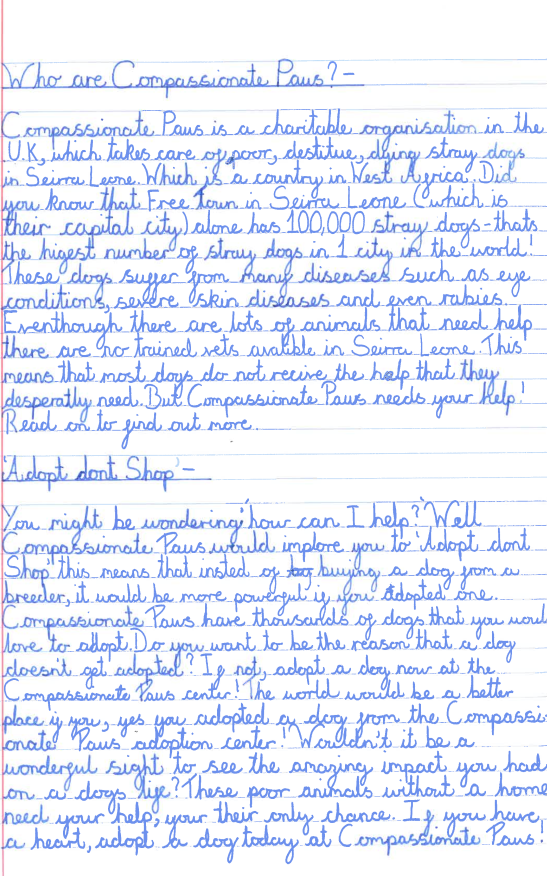 Who are Compassionate Paws?-
Compassionate Paws is a charitable organisation in the
U.K, which takes care of poor, destitue, dying stray dogs
in Seirra Leone. Which is a country in West Africa. Did
you know that Free Town in Seirra Leone (which is
their capital city) alone has 100,000 stray dogs-thats
the higest number of stray dogs in 1 city in the world!
These dogs suffer from many diseases such as eye
conditions, severe skin diseases and even rabies.
Eventhough there are lots of animals that need help
there are no trained vets avalible in Seirra Leone. This
means that most dogs do not recive the help that they
desperatly need. But Compassionate Paws needs your help!
Read on to find out more.
'Adopt dont Shop'-
You might be wondering 'how can I help?' Well
Compassionate Paws would implore you to 'Adopt dont
Shop' this means that insted of buying a dog from a
breeder, it would be more powerful if you adopted one.
Compassionate Paws have thousands of dogs that you woul
love to adopt. Do you want to be the reason that a dog
doesn't get adopted? If not, adopt a dog now at the
Compassionate Paws center! The world would be a better
place if you, yes you adopted a dog from the Compassi-
onate Paws adoption center! Wouldn't it be a
wonderful sight to see the amazing impact you had
on a dogs life? These poor animals without a home
need your help, your their only chance. If you have
a heart, adopt a dog today at Compassionate Paws!